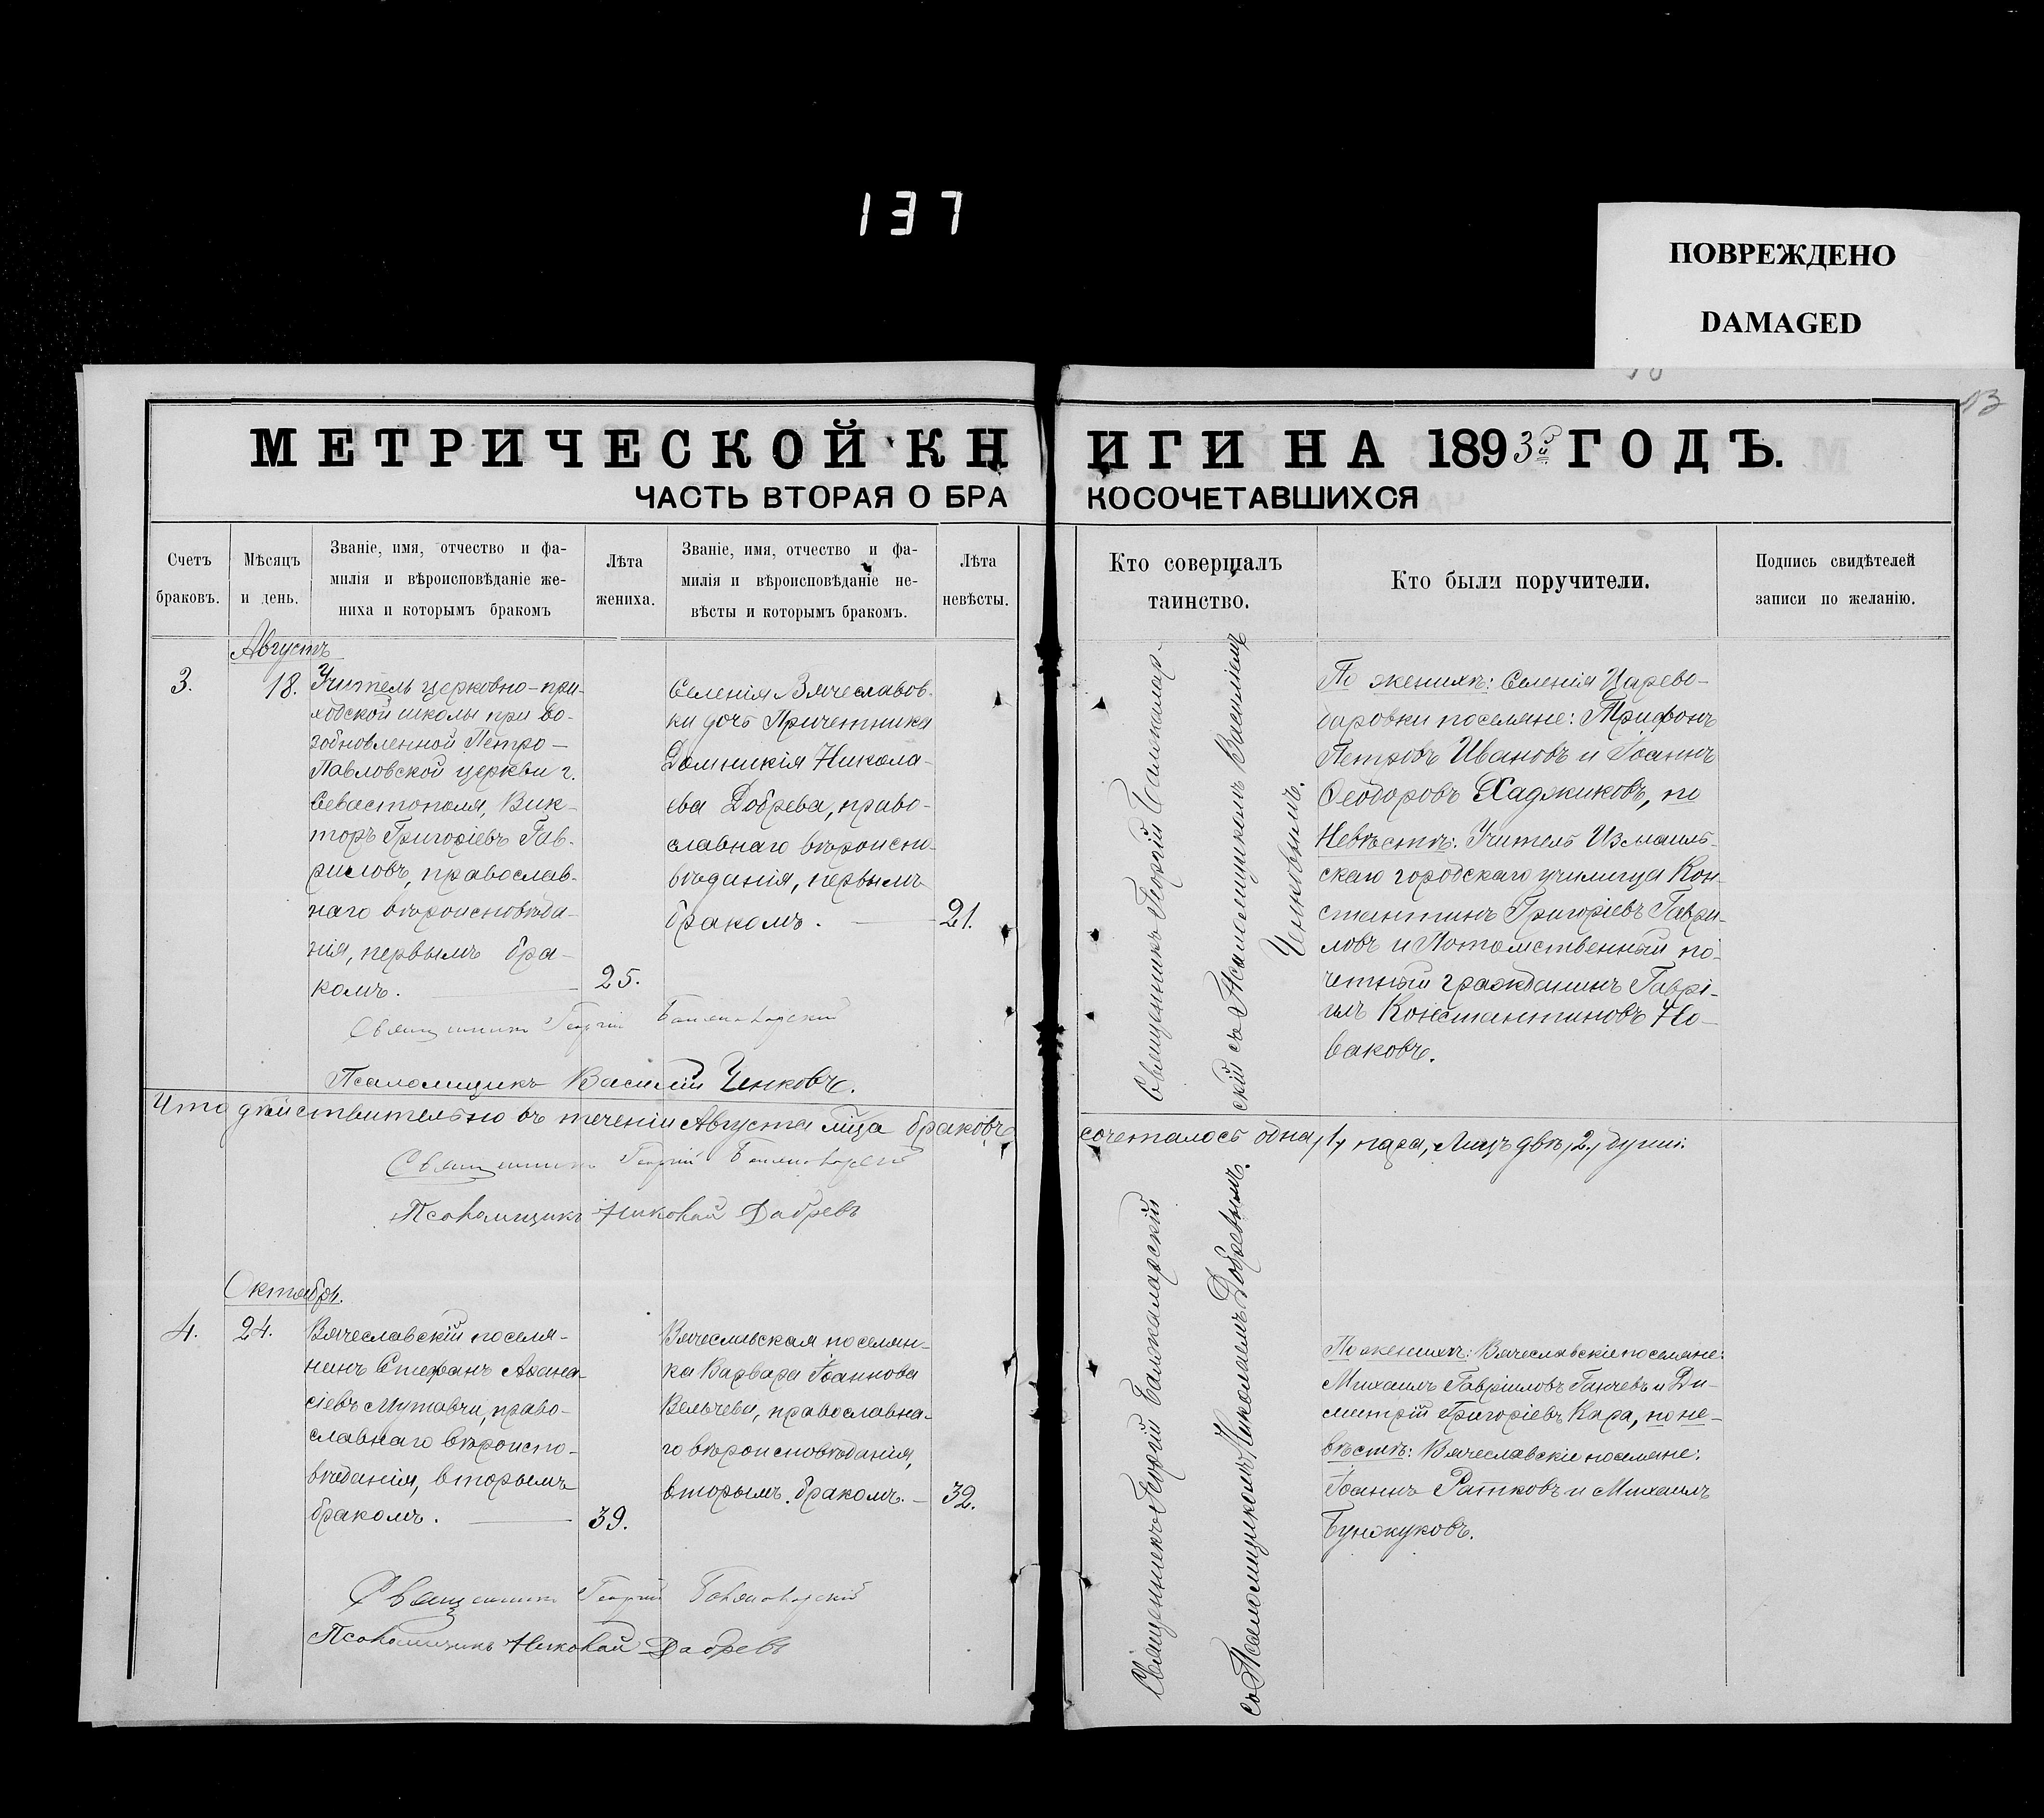 137
ПОВРЕЖДЕНО
DAMAGED
13
МЕТРИЧЕСКОЙ КНИГИ НА 1893й ГОДЪ.
ЧАСТЬ ВТОРАЯ О БРАКОСОЧЕТАВШИХСЯ
Счетъ
браковъ.
Мѣсяцъ
и день.
Званіе, имя, отчество и фа-
милія и вѣроисповѣданіе же-
ниха и которымъ бракомъ
Лѣта
жениха.
Званіе, имя, отчество и фа-
милія и вѣроисповѣданіе не-
вѣсты и которымъ бракомъ.
Лѣта
невѣсты.
Кто совершалъ
таинство.
Кто были поручители.
Подпись свидѣтелей
записи по желанію.
Августъ
3.
18.
Учитель церковно-при-
ходской школы при во-
зобновленной Петро-
Павловской церкви г.
Севастополя, Вик-
торъ Григоріевъ Гав-
риловъ, православ-
наго вѣроисповѣда-
нія, первымъ бра-
комъ.
25.
Селенія Вячеславов-
ки дочь Причетника
Домникія Никола-
ева Добрева, право-
славнаго вѣроиспо-
вѣданія, первымъ
бракомъ.
21.
Священникъ Георгій
скій съ Псаломщикомъ Василіемъ
Ченковымъ.
По женихѣ: Селенія Царево-
даровки поселяне: Трифонъ
Петровъ Ивановъ и Іоаннъ
Феодоровъ Хаджиковъ, по
Невѣстѣ: Учитель Измаиль-
скаго городскаго училища Кон-
стантинъ Григоріевъ Гаври-
ловъ и Потомственный по-
четный гражданинъ Гаврі-
илъ Константиновъ Но-
ваковъ.
Священникъ Георгій
Псаломщикъ Василій Ченковъ.
Что дѣйствительно въ теченіи Августа м-ца браковъ сочеталось одна /1/ пара, лицъ двѣ /2/ души.
Священникъ Георгій
Псаломщикъ Николай Добревъ
Октября.
4.
24.
Вячеславскій поселя-
нинъ Стефанъ Афана-
сіевъ Мутавчи, право-
славнаго вѣроиспо-
вѣданія, вторымъ
бракомъ.
39.
Вячеславская поселян-
ка Варвара Іоаннова
Вельчева, православна-
го вѣроисповѣданія,
вторымъ бракомъ.
32.
Священникъ Георгій
съ Псаломщикомъ Николаемъ Добревымъ.
По женихѣ: Вячеславскіе поселяне:
Михаилъ Гавріиловъ Ганчевъ и Ди-
митрій Григоріевъ Кара, по не-
вѣстѣ: Вячеславскіе поселяне:
Іоаннъ Ратковъ и Михаилъ
Бунжуковъ.
Священникъ Георгій
Псаломщикъ Николай Добревъ